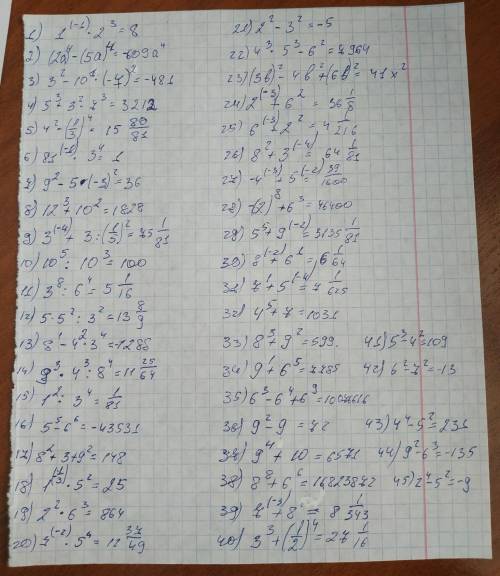 1) 1^(-1) · 2^3 = 8
2) (2a)^4 - (5a)^4 = -609a^4
3) 3^2 - 10 · (-7)^2 = -481
4) 5^3 · 3^2 · 7^3 = 3212
5) 4^2 - (1/3)^4 = 15 80/81
6) 81^(-1) · 3^4 = 1
7) 9^2 - 5 · (-3)^2 = 36
8) 12^3 + 10^2 = 1828
9) 3^(-4) + 3 : (1/5)^2 = 75 1/81
10) 10^5 : 10^3 = 100
11) 3^8 : 6^4 = 5 1/16
12) 5 · 5^2 : 3^2 = 13 8/9
13) 8^1 - 4^2 · 3^4 = -1288
14) 9^3 · 4^3 : 8^4 = 11 25/64
15) 1^2 : 3^4 = 1/81
16) 5^5 - 6^6 = -43531
17) 8^2 + 3 + 9^2 = 148
18) 1^(17/3) · 5^2 = 25
19) 2^2 · 6^3 = 864
20) 7^(-2) · 5^4 = 12 37/49
21) 2^2 - 3^2 = -5
22) 4^3 · 5^3 - 6^2 = 7964
23) (3b)^2 - 4b^2 + (6b)^2 = 41x^2
24) 2^(-3) + 6^2 = 36 1/8
25) 6^(-3) + 2^2 = 4 1/216
26) 8^2 + 3^(-4) = 64 1/81
27) -4^(-3) + 5^(-2) = 39/1600
28) -(2)^8 + 6^3 = 46400
29) 5^5 + 9^(-2) = 3135 1/81
30) 8^(-2) + 6^1 = 6 1/64
31) 7^1 + 5^(-4) = 7 1/625
32) 4^5 + 7 = 1031
33) 8^3 + 9^2 = 599. 41) 5^3 - 4^2 = 109
34) 9^1 + 6^5 = 7785 42) 6^2 - 7^2 = -13
35) 6^3 - 6^4 + 6^9 =
36) 9^2 - 9 = 72 43) 4^4 - 5^2 = 231
37) 9^4 + 10 = 6571 44) 9^2 - 6^3 = -135
38) 8^8 + 6^6 = 16823872 45) 2^4 - 5^2 = -9
39) 7^(-3) + 8^1 = 8 1/343
40) 3^3 + (1/2)^4 = 27 1/16